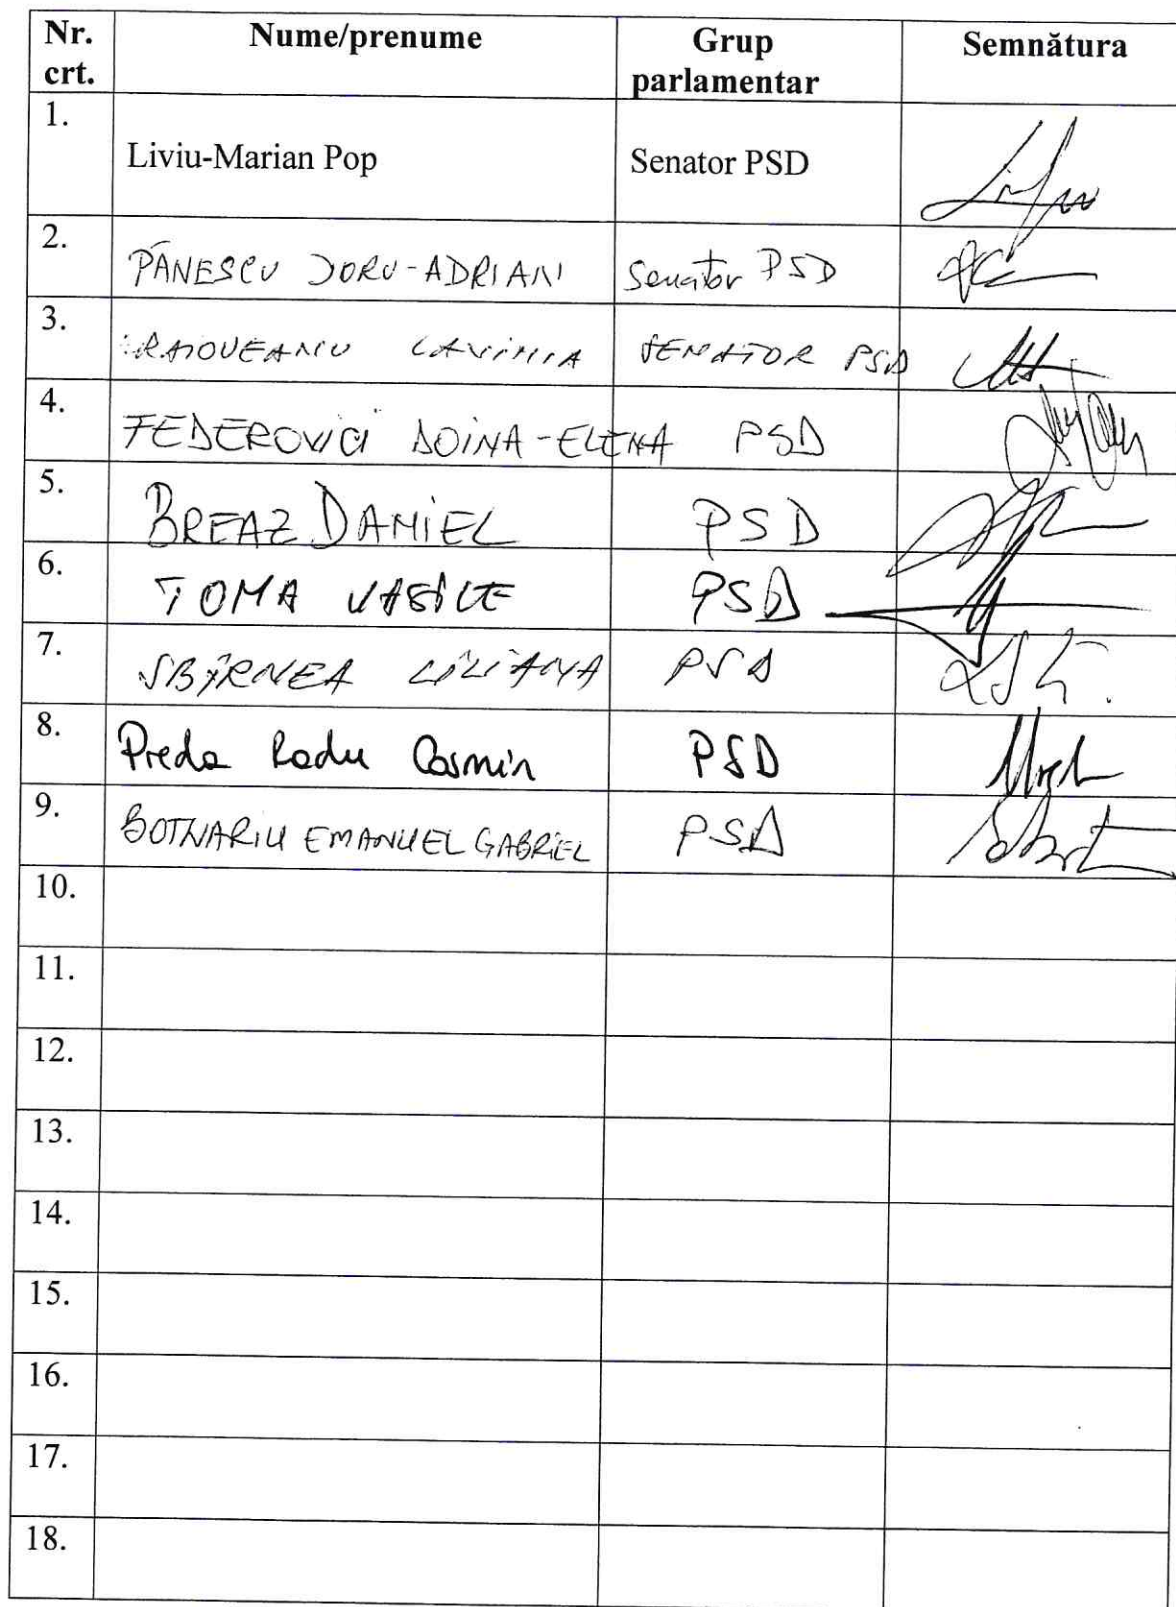 Nr. crt. Nume/prenume Grup parlamentar Semnătura
1. Liviu-Marian Pop Senator PSD
2. PĂNESCU DORU-ADRIAN Senator PSD
3. CRAIOVEANU LAVINIA SENATOR PSD
4. FEDEROVICI DOINA-ELENA PSD
5. BREAZ DANIEL PSD
6. TOMA VASILE PSD
7. SBÎRNEA LILIANA PSD
8. Preda Radu Cosmin PSD
9. BOTNARIU EMANUEL GABRIEL PSD
10.
11.
12.
13.
14.
15.
16.
17.
18.